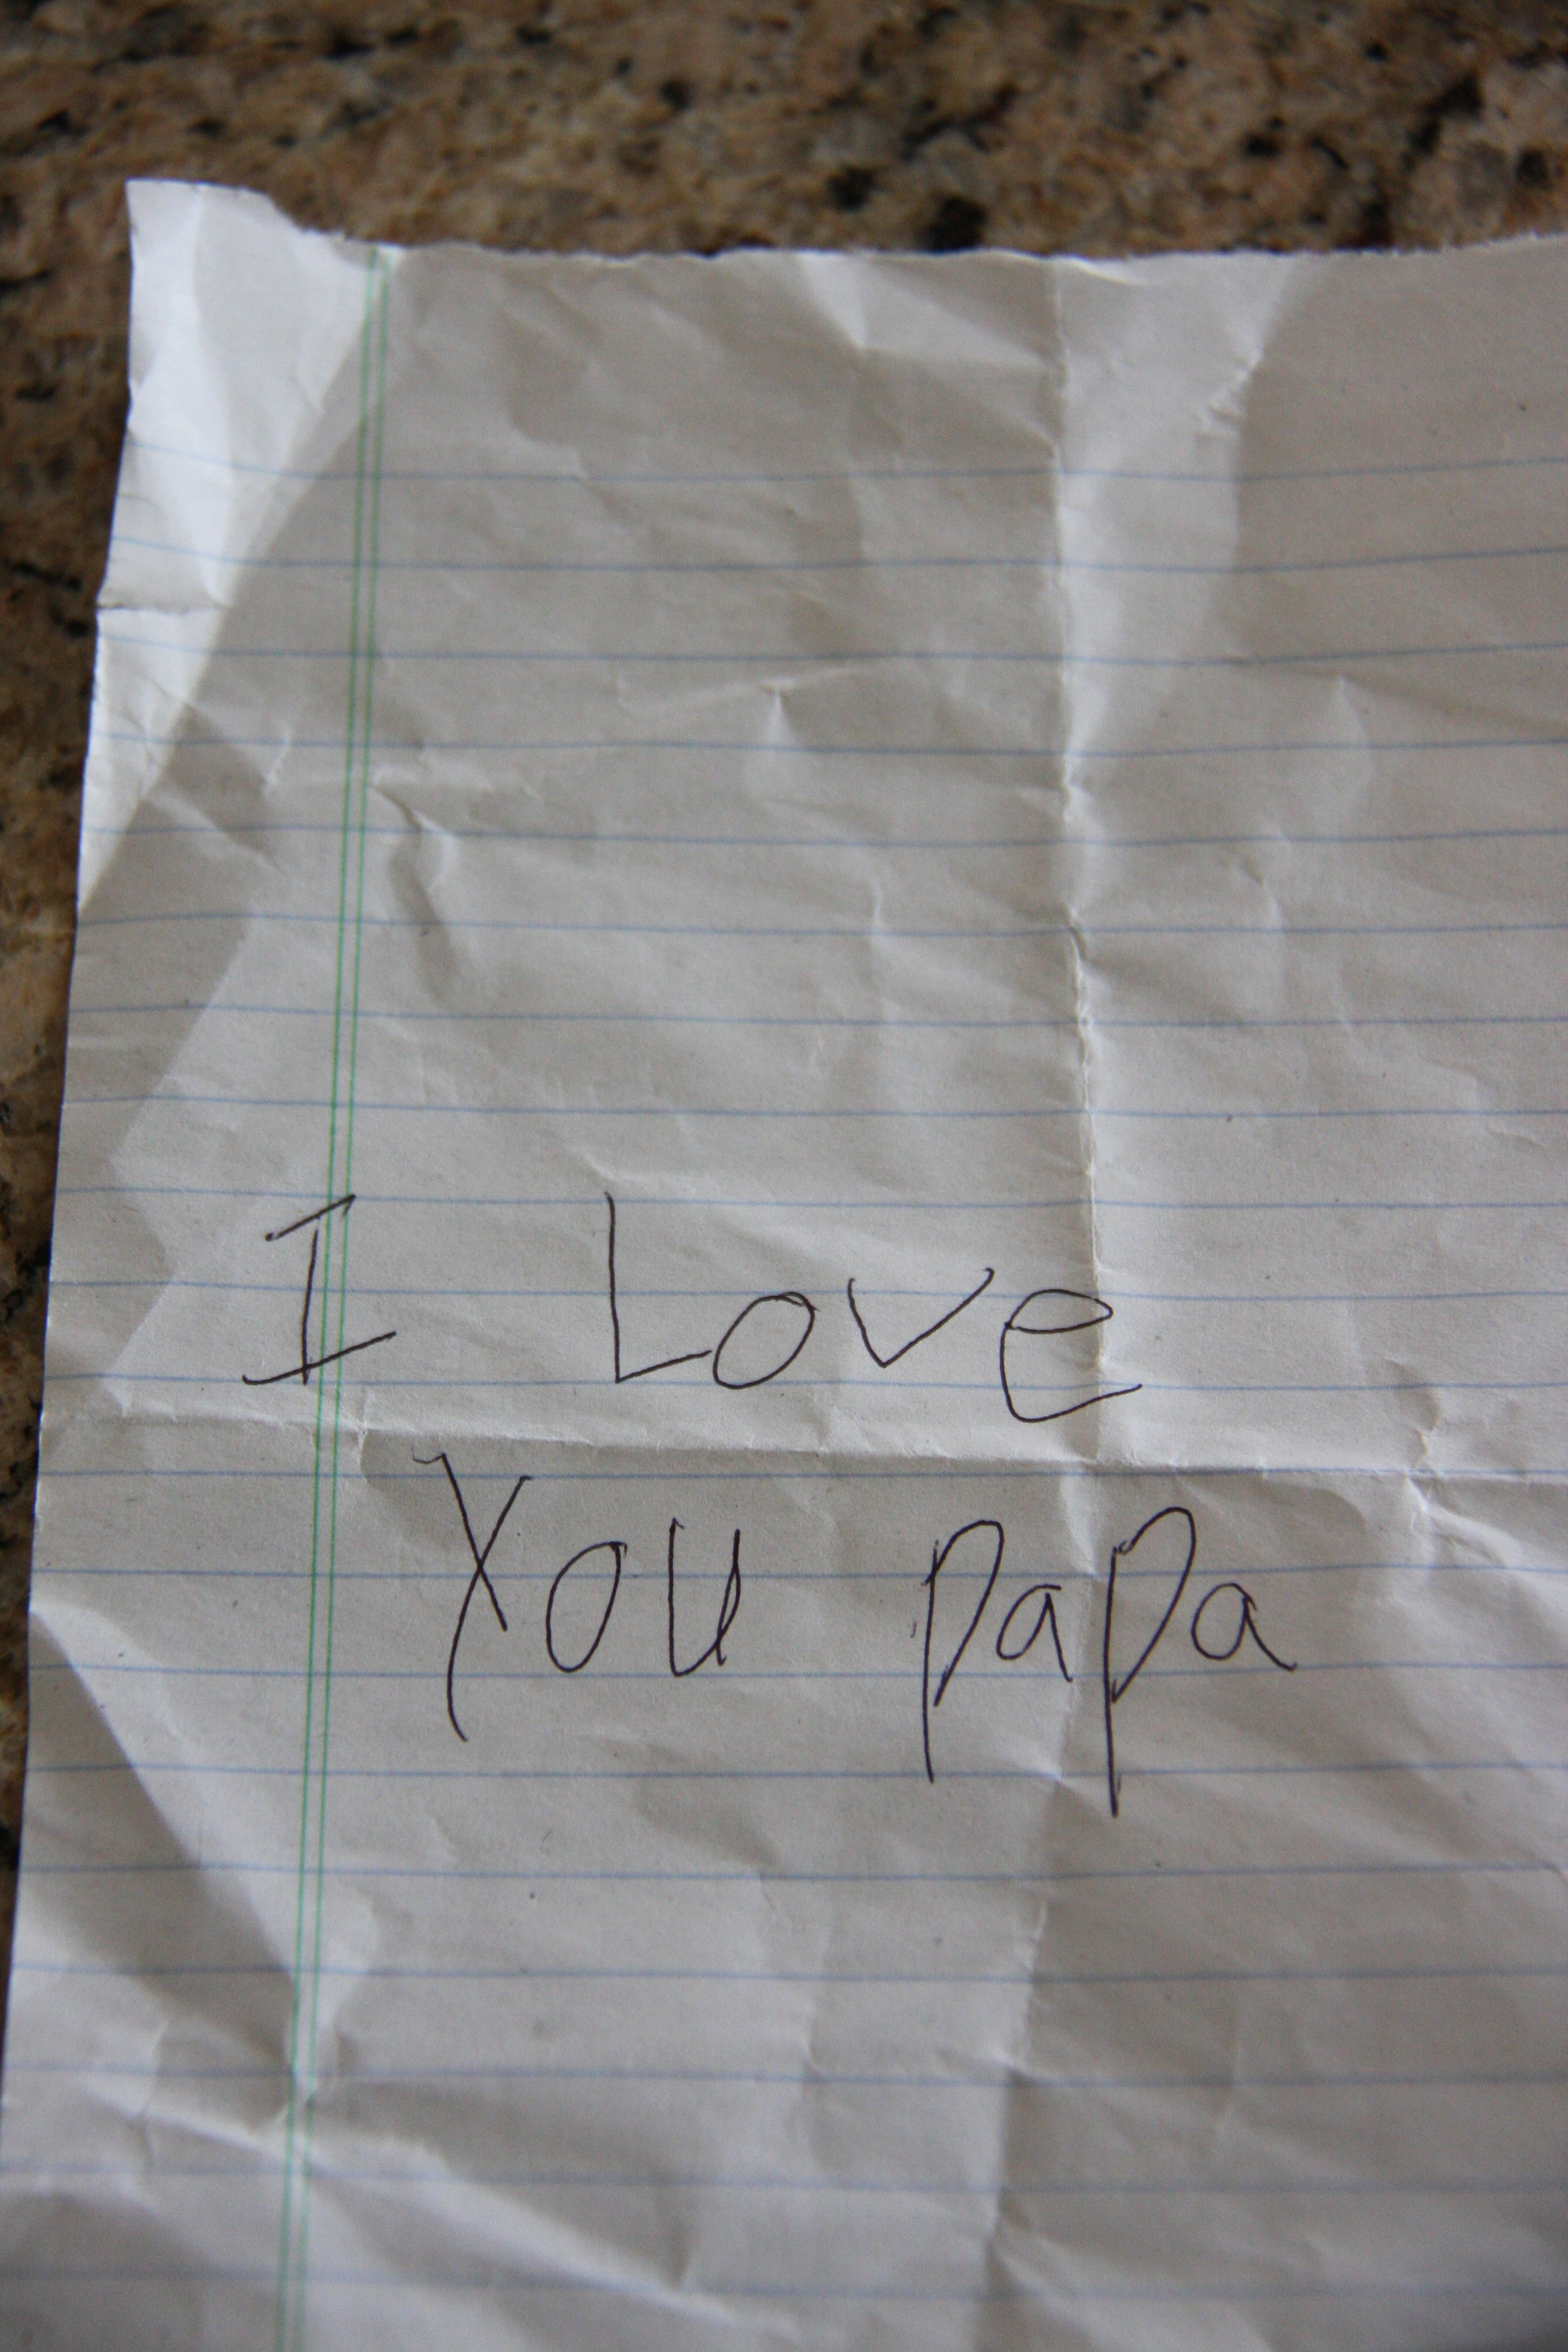 I Love
You papa